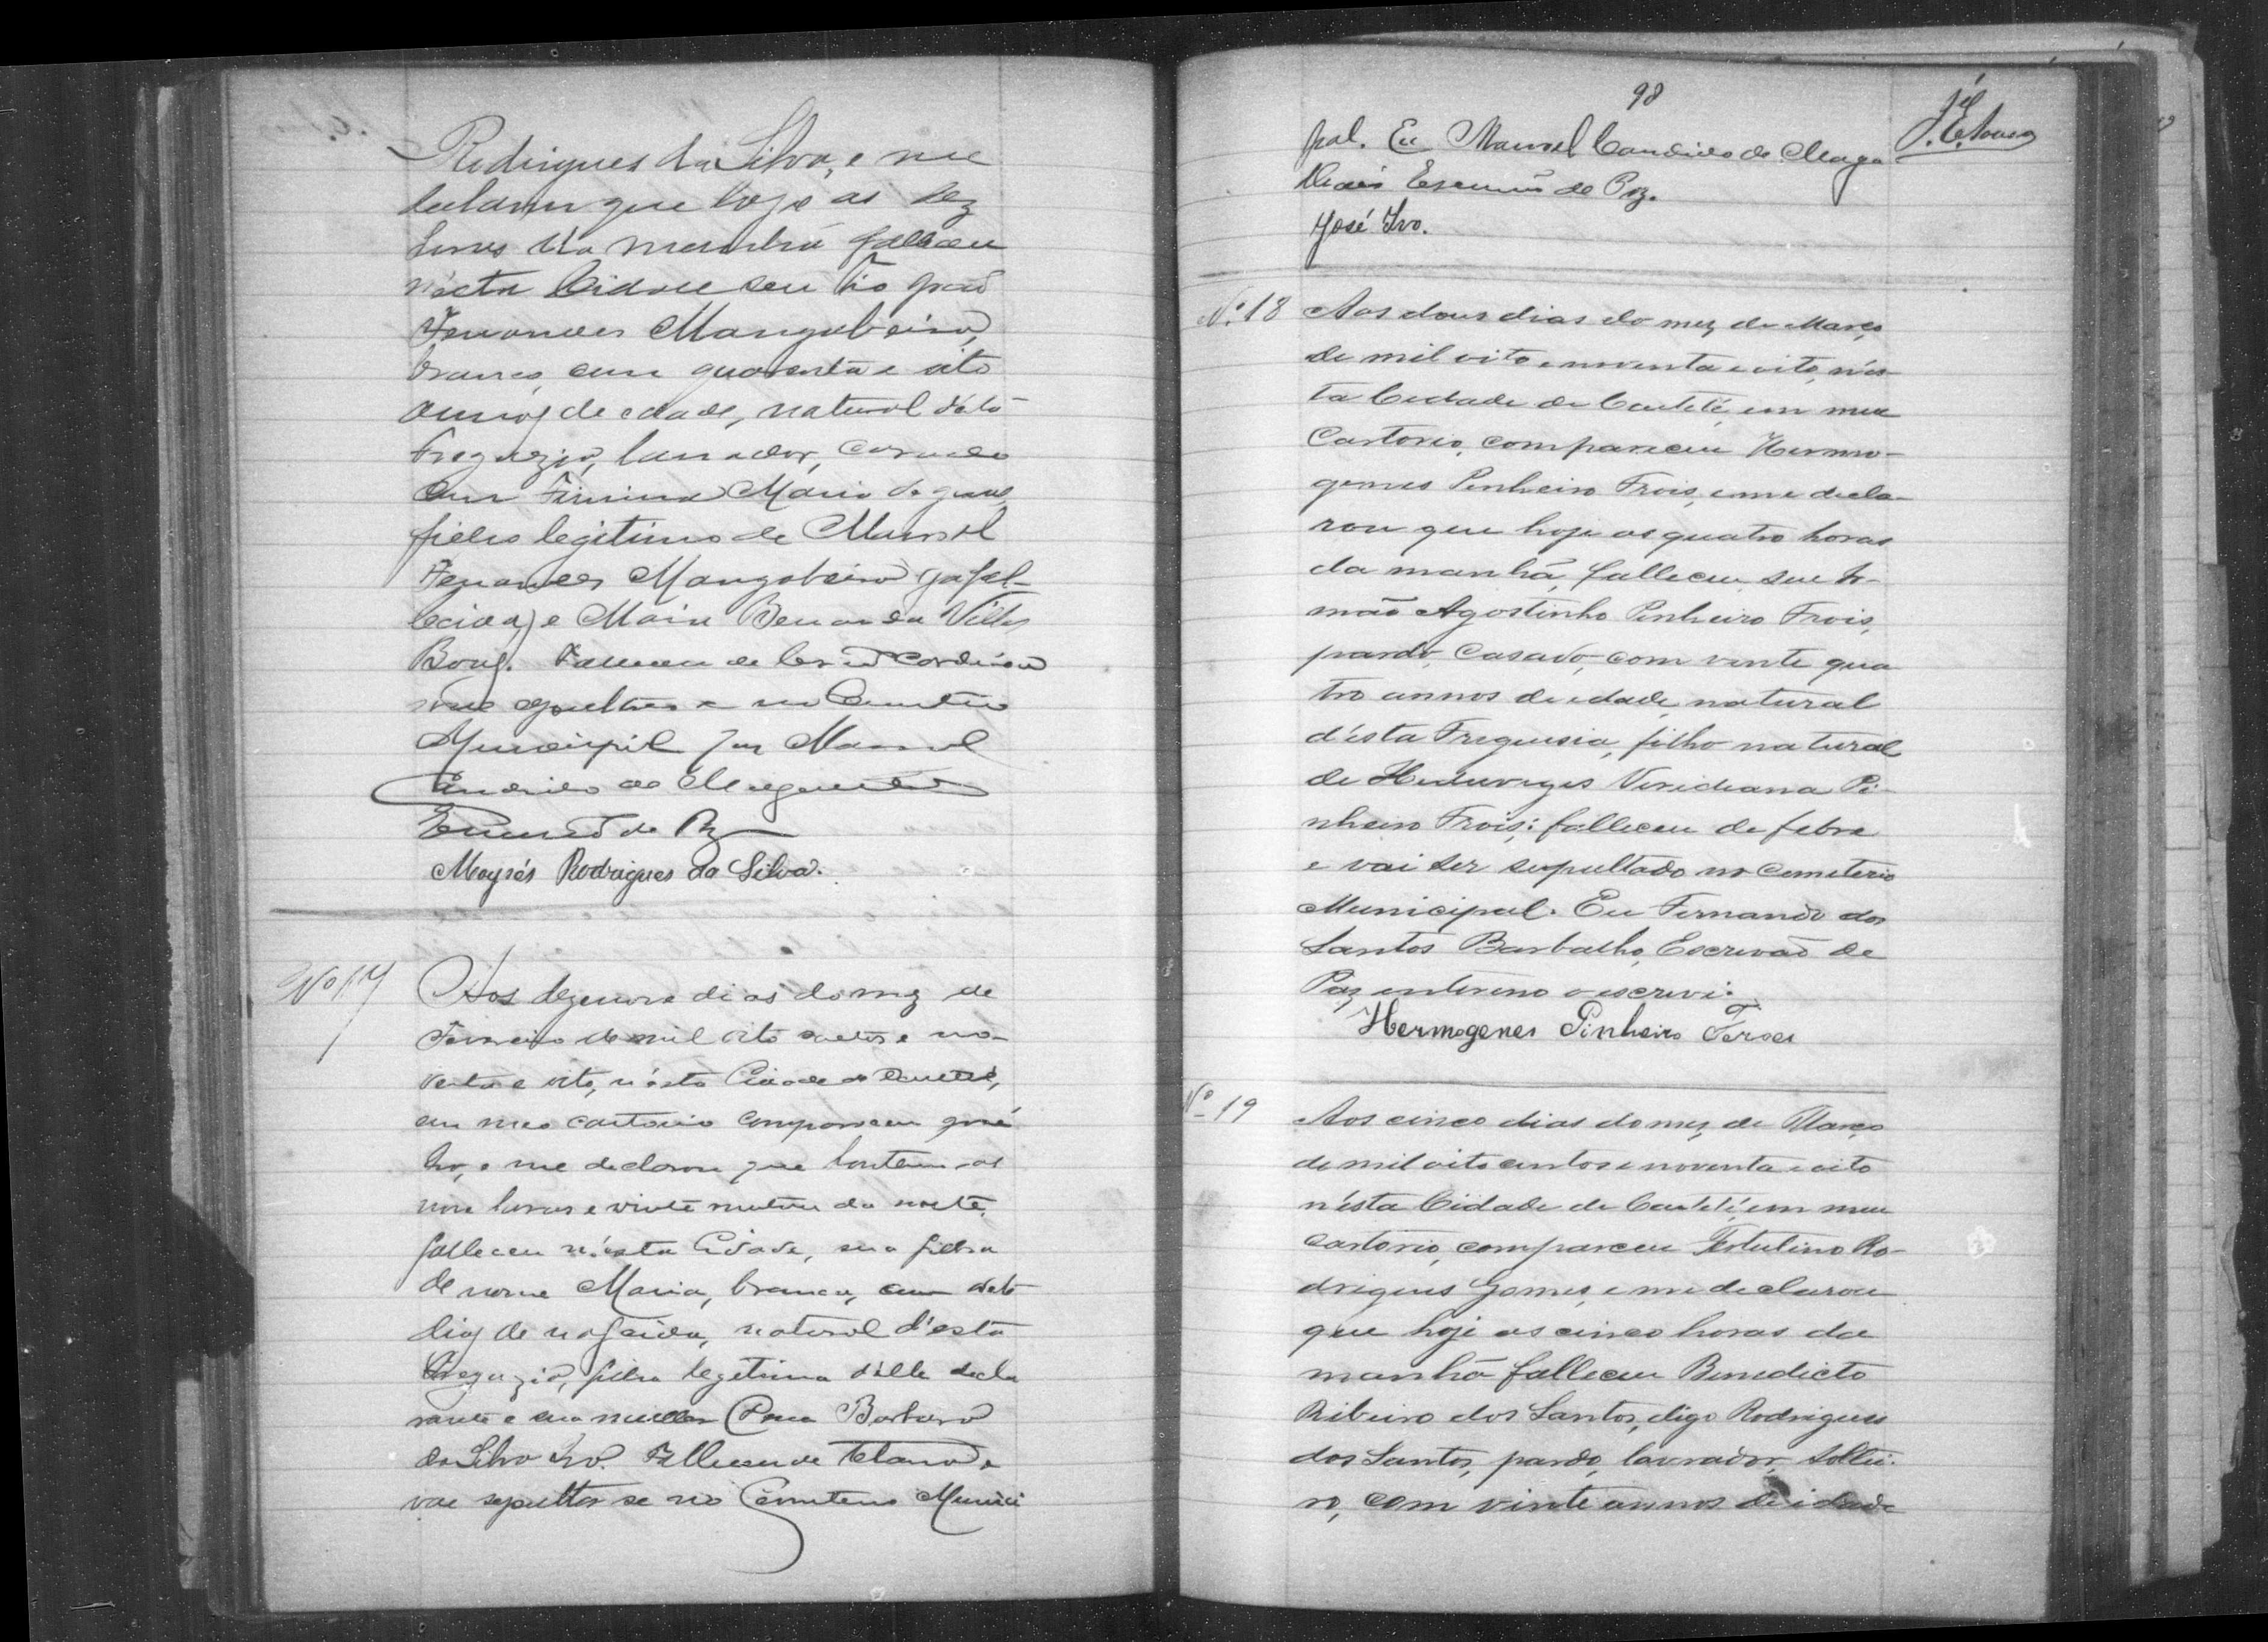 Rodrigues da Silva, e me
declarou que hoje as dez
horas da manhã falleceu
nésta Cidade seu Tio José
Fernandes Mangabeira,
branco, com quarenta e oito
annos de edade, natural désta
Freguezia, lavrador, casado
com Firmina Maria de Jesus,
filho legitimo de Manoel
Fernandes Mangabeira (já fal-
lecido) e Maria Bernarda Villas
Boas. Falleceu de lesão cardiaca
vae sepultar-se no Cemiterio
Municipal Eu Manoel
Candido de Magalhães
Escrivão de Paz
Moysés Rodrigues da Silva.
Nº 17 Aos dezenove dias do mez de
Fevereiro de mil oito centos e no-
venta e oito, n'ésta Cidade de Caeteté,
em meu cartorio compareceu José
Ivo, e me declarou que hontem as
nove horas e vinte minutos da noite,
falleceu n'ésta Cidade, sua filha
de nome Maria, branca, com oito
dias de nascida, natural d'ésta
Freguezia, filha legitima d'elle decla
rante e sua mulher Anna Barbara
da Silva Ivo. Falleceu de Tetano e
vae sepultar se no Cemiterio Munici
98
pal. Eu Manoel Candido de Maga
lhães Escrivão de Paz.
José Ivo.
Nº 18 Aos dous dias do mez de Março,
de mil oito e noventa e oito, n'és-
ta Cidade de Caeteté, em meu
Cartorio, compareceu Hermo-
genes Pinheiro Frois, e me decla-
rou que hoje as quatro horas
da manhã, falleceu seu Ir-
mão Agostinho Pinheiro Frois,
pardo, casado, com vinte qua
tro annos de edade, natural
d'ésta Freguesia, filho natural
de Heduviges Viridiana Pi-
nheiro Frois; falleceu de febre
e vai ser sepultado no Cemeterio
Municipal. Eu Fernando dos
Santos Barbalho, Escrivão de
Paz enterino o escrevi.
Hermogenes Pinheiro Feroes
Nº 19 Aos cinco dias do mez de Março
de mil oito centos e noventa e oito
n'ésta Cidade de Caeteté, em meu
cartorio, compareceu Tertulino Ro-
drigues Gomes, e me declarou
que hoje as cinco horas da
manhã falleceu Benedicto
Ribeiro dos Santos, digo Rodrigues
dos Santos, pardo, lavrador, soltei-
ro, com vinte annos de idade